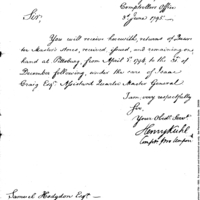 Comptrollers Office
3d June 1795.
Sir,
You will receive herewith, returns of Quarter
Master Stores, received, issued, and remaining on
hand at Pittsburg, from April 1st 1794, to the 31st of
December following, under the care of Isaac
Craig Esqr Assistant Quarter Master General
I am, very respectfully
Sir,
Your Obedt Servt
Henry Kuhl
Samuel Hodgdon Esqr